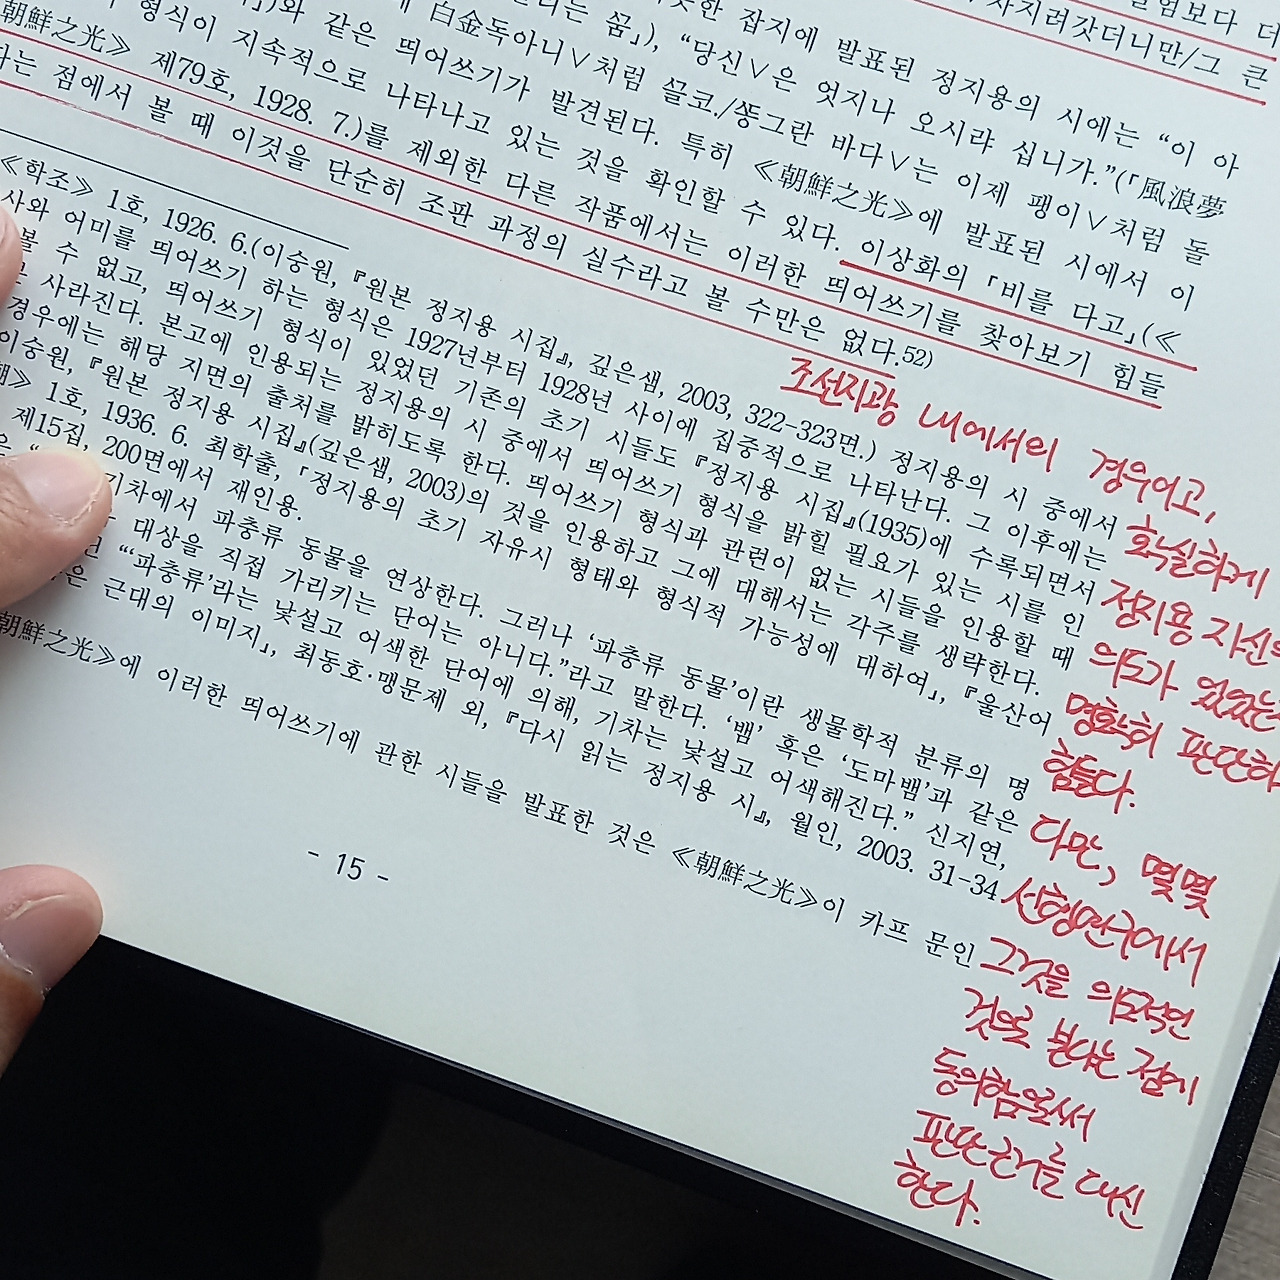 험보다 더
자지려갓더니만/그 큰
못한 잡지에 발표된 정지용의 시에는 “이 아
는 꿈」), “당신∨은 엇지나 오시랴 십니가.”(「風浪夢
白金독아니∨처럼 끌코./쫑그란 바다∨는 이제 팽이∨처럼 돌
」)와 같은 띄어쓰기가 발견된다. 특히 ≪朝鮮之光≫에 발표된 시에서 이
형식이 지속적으로 나타나고 있는 것을 확인할 수 있다. 이상화의 「비를 다고」(≪
朝鮮之光≫ 제79호, 1928. 7.)를 제외한 다른 작품에서는 이러한 띄어쓰기를 찾아보기 힘들
다는 점에서 볼 때 이것을 단순히 조판 과정의 실수라고 볼 수만은 없다.52)
≪학조≫ 1호, 1926. 6.(이숭원, 『원본 정지용 시집』, 깊은샘, 2003, 322-323면.) 정지용의 시 중에서
사와 어미를 띄어쓰기 하는 형식은 1927년부터 1928년 사이에 집중적으로 나타난다. 그 이후에는
볼 수 없고, 띄어쓰기 형식이 있었던 기존의 초기 시들도 『정지용 시집』(1935)에 수록되면서
사라진다. 본고에 인용되는 정지용의 시 중에서 띄어쓰기 형식을 밝힐 필요가 있는 시를 인
경우에는 해당 지면의 출처를 밝히도록 한다. 띄어쓰기 형식과 관련이 없는 시들을 인용할 때
이숭원, 『원본 정지용 시집』(깊은샘, 2003)의 것을 인용하고 그에 대해서는 각주를 생략한다.
≫ 1호, 1936. 6. 최학출, 「정지용의 초기 자유시 형태와 형식적 가능성에 대하여」, 『울산어
제15집, 200면에서 재인용.
기차에서 파충류 동물을 연상한다. 그러나 ‘파충류 동물’이란 생물학적 분류의 명
대상을 직접 가리키는 단어는 아니다.”라고 말한다. ‘뱀’ 혹은 ‘도마뱀’과 같은
“‘파충류’라는 낯설고 어색한 단어에 의해, 기차는 낯설고 어색해진다.” 신지연,
은 근대의 이미지」, 최동호·맹문제 외, 『다시 읽는 정지용 시』, 월인, 2003. 31-34
朝鮮之光≫에 이러한 띄어쓰기에 관한 시들을 발표한 것은 ≪朝鮮之光≫이 카프 문인
- 15 -
조선지광 내에서의 경우이고,
확실하게
정지용 자신의
의도가 있었는
명확히 판단하
힘들다.
다만, 몇몇
선행연구에서
그것을 의도적인
것으로 본다는 점에
동의함으로써
판단근거를 대신
한다.